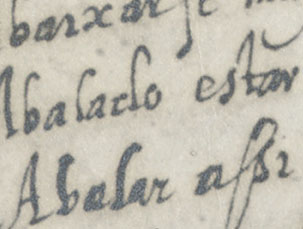 barxarse
Abalado estar
Abalar assi